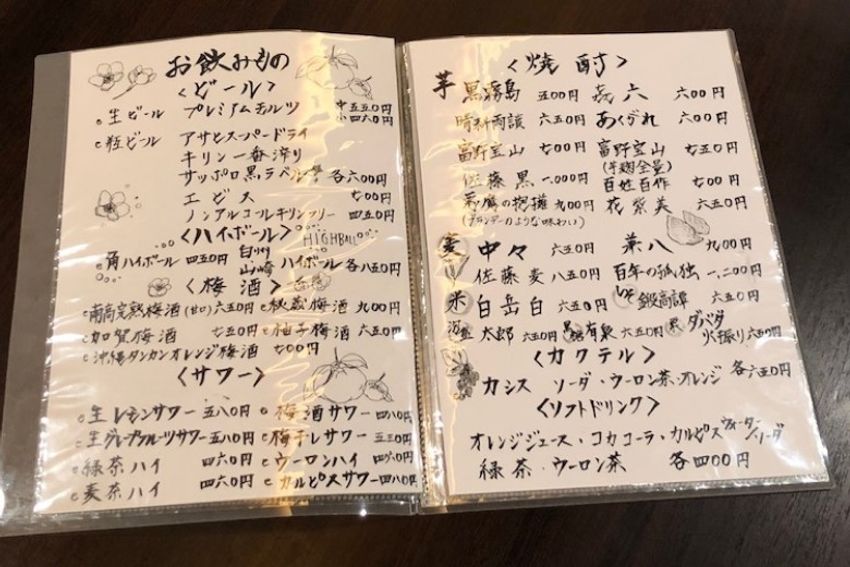 お飲みもの
<ビール>
生ビール プレミアムモルツ 中五五〇円
小四六〇円
瓶ビール アサヒスーパードライ
キリン一番搾り
サッポロ黒ラベル 各六〇〇円
エビス 七〇〇円
ノンアルコールキリンフリー 四五〇円
<ハイボール> HIGHBALL
角ハイボール 四五〇円 白州 山崎 ハイボール 各八五〇円
<梅酒>
南高完熟梅酒(甘口) 六五〇円 秋蔵梅酒 九〇〇円
加賀梅酒 七五〇円 柚子梅酒 六五〇円
沖縄タンカンオレンジ梅酒 七〇〇円
<サワー>
生レモンサワー 五八〇円 梅酒サワー 四八〇円
生グレープフルーツサワー 五八〇円 梅干しサワー 五三〇円
緑茶ハイ 四六〇円 ウーロンハイ 四六〇円
麦茶ハイ 四六〇円 カルピスサワー 四八〇円
<焼酎>
芋 黒霧島 五〇〇円 㐂六 六〇〇円
晴耕雨読 六五〇円 あくがれ 六〇〇円
富乃宝山 富乃宝山 七五〇円
(芋麹全量)
佐藤黒 一、〇〇〇円 百姓百作 七〇〇円
の抱擁 九〇〇円 花紫美 六五〇円
(ブランデーのような味わい)
麦 中々 六五〇円 兼八 九〇〇円
佐藤麦 八五〇円 百年の孤独 一、二〇〇円
米 白岳白 六五〇円 しそ 鍛高譚 六五〇円
泡盛 太郎 六五〇円 黒糖 有泉 六五〇円 栗 ダバダ火振り 六五〇円
<カクテル>
カシス ソーダ・ウーロン茶・オレンジ 各六五〇円
<ソフトドリンク>
オレンジジュース・コカコーラ・カルピス ウォーター ソーダ
緑茶・ウーロン茶 各四〇〇円